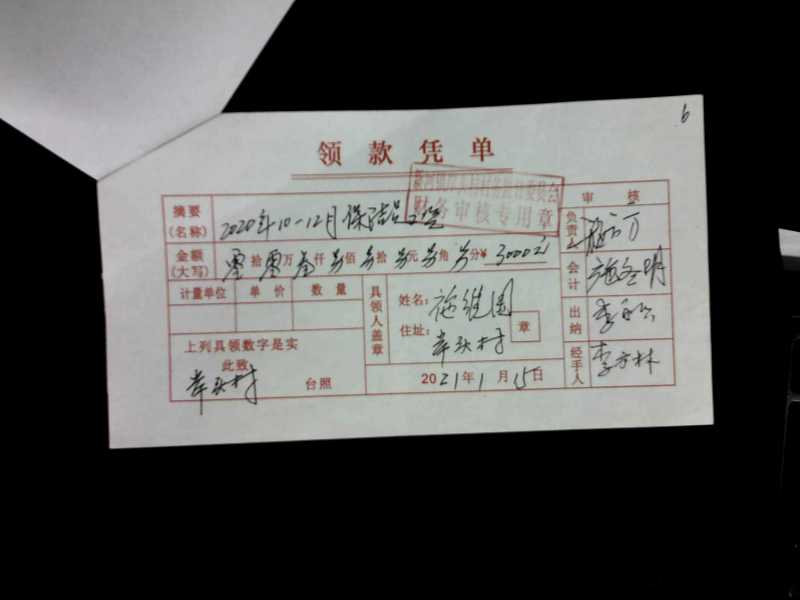 6
领款凭单
财务审核专用章
审核
摘要(名称) 2020年10-12月保洁员工资
负责人
金额(大写) 零拾零万叁仟另佰另拾另元另角另分¥ 3000元
会计 施金明
计量单位 单价 数量
具领人盖章 姓名: 施继周
住址: 岸头村 章
出纳
上列具领数字是实
此致
岸头村 台照
2021年1月15日
经手人 李方林